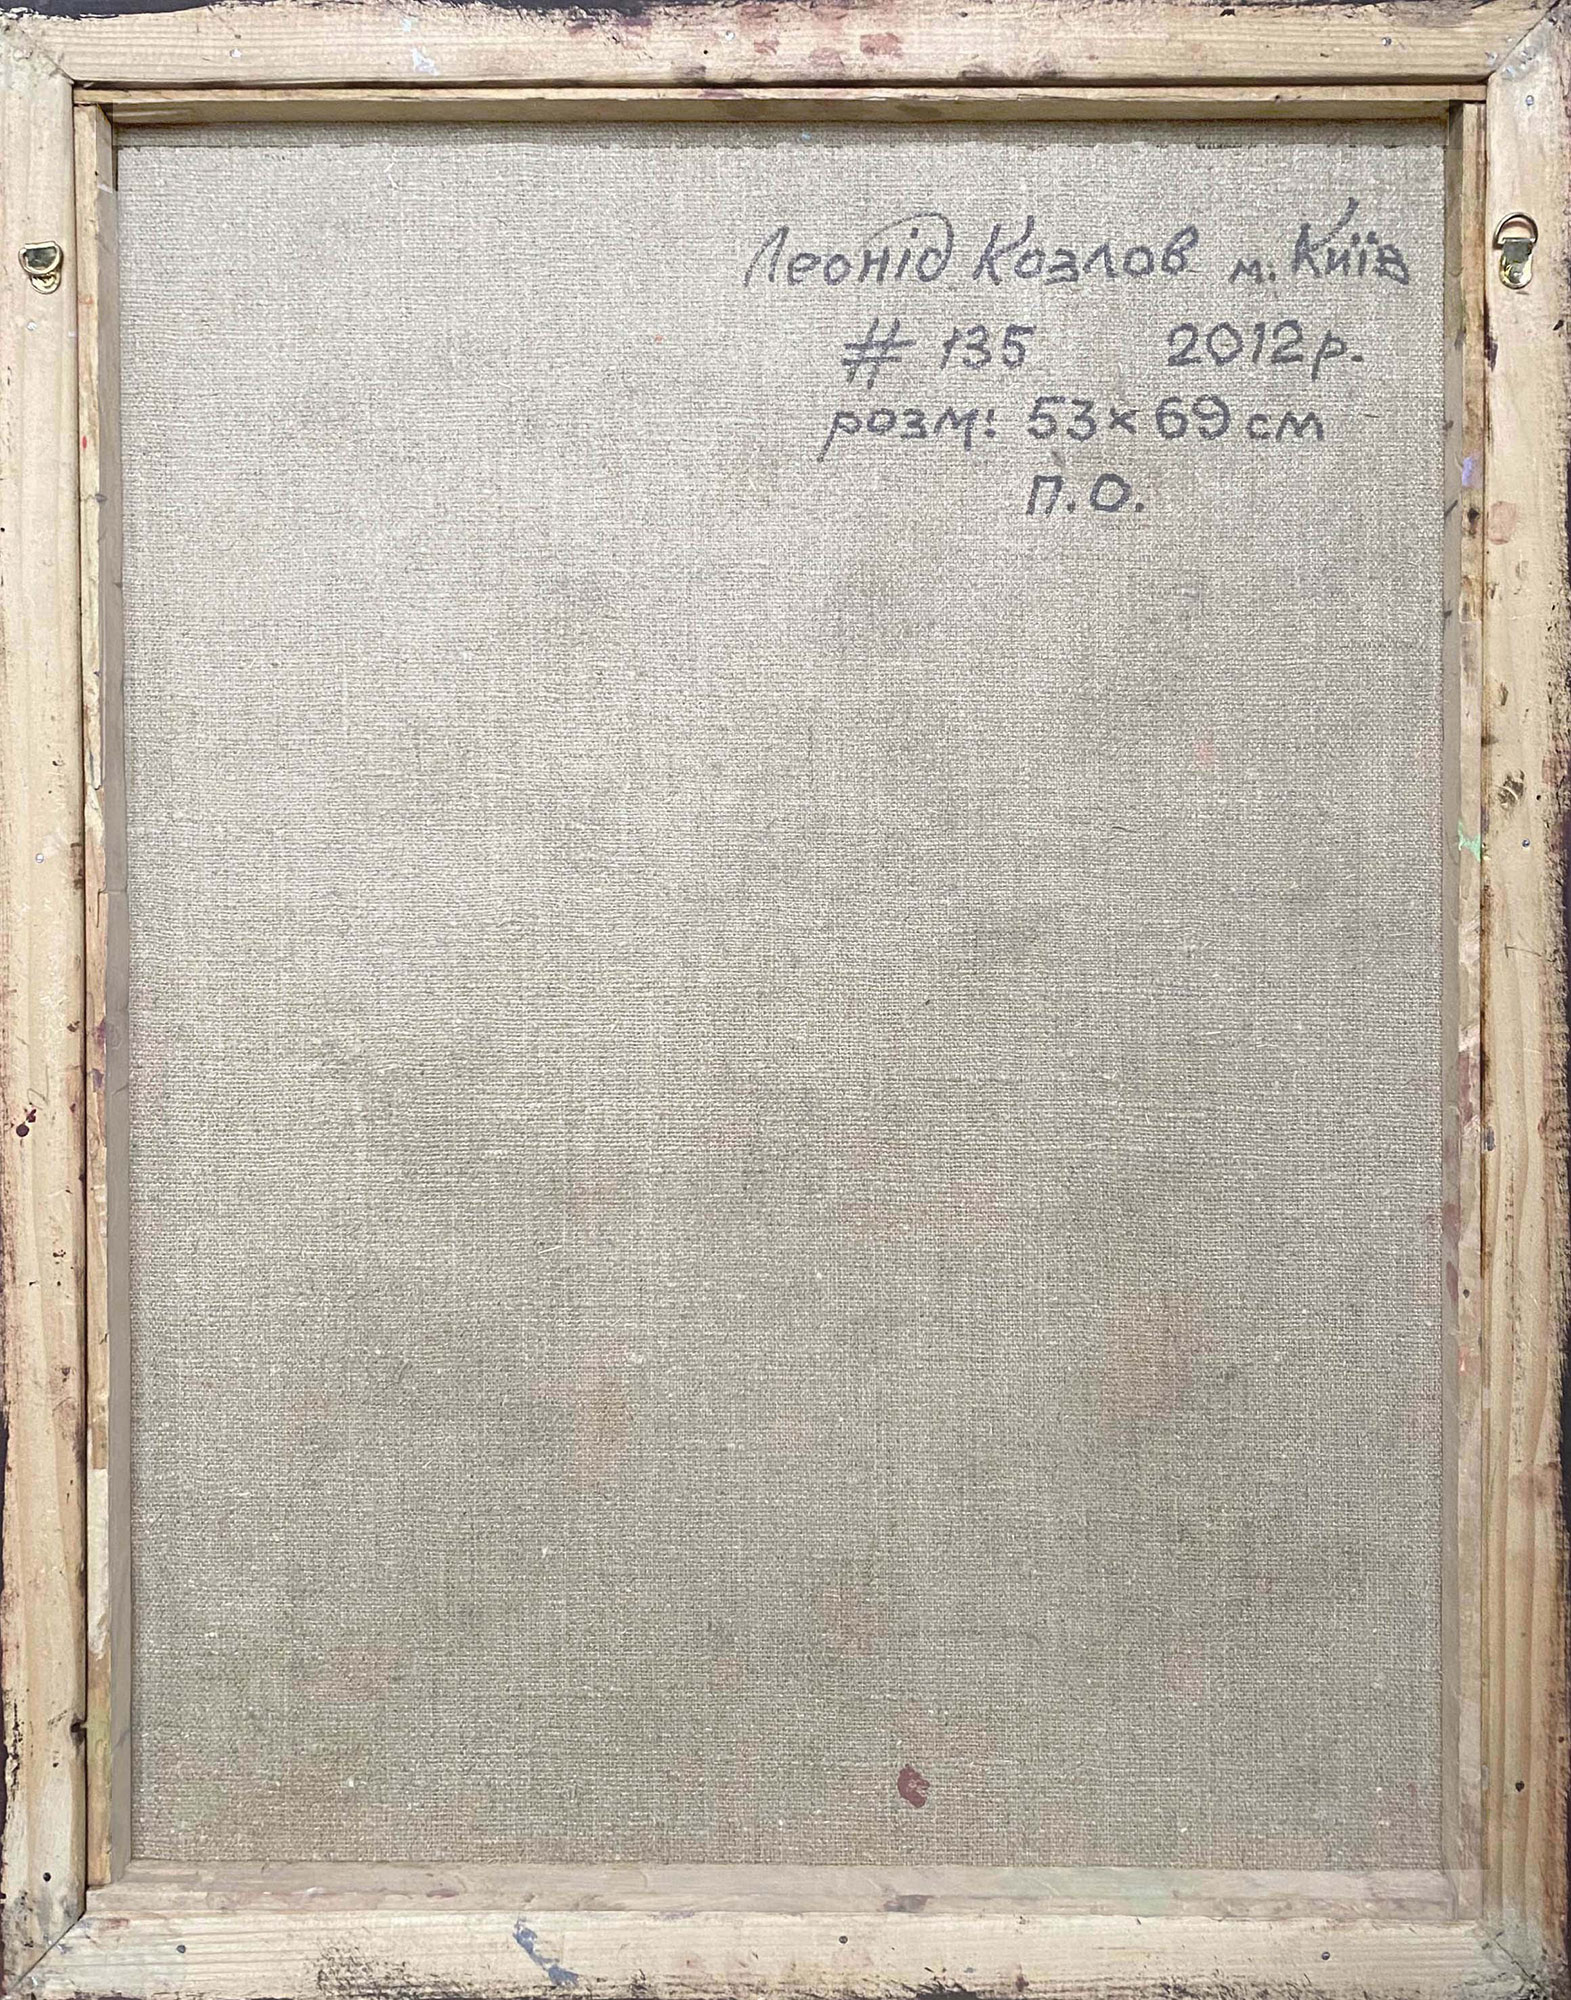 Леонід Козлов м. Київ
# 135 2012р.
розм: 53х69см
П.О.